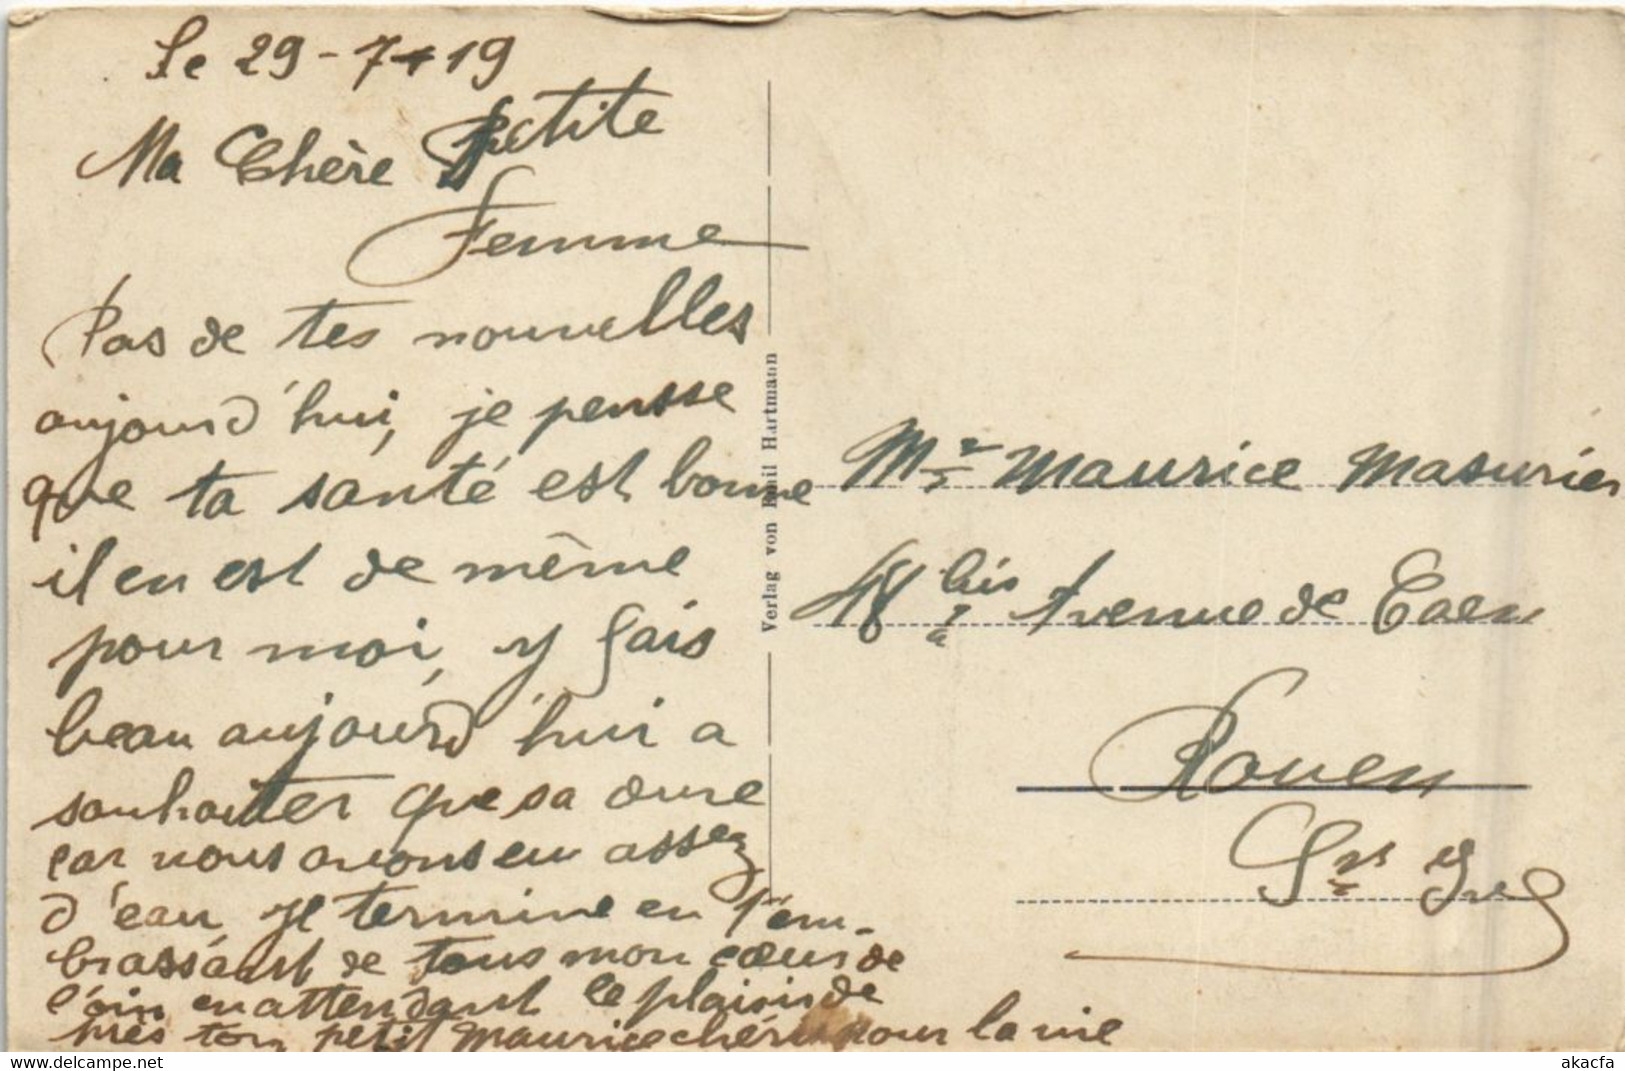 Le 29-7-19
Ma Chère Petite
Femme
Pas de tes nouvelles
aujourd'hui, je pensse
que ta santé est bonne
il en est de même
pour moi, y fais
beau aujourd'hui a
souhaiter que sa dure
car nous avons eu assez
d'eau, je termine en t'em-
brassant de tous mon cœur de
l'oin en attendant le plaisir de
près ton petit Maurice chéri pour la vie
Verlag von Emil Hartmann
Maurice Masurier
48 bis Avenue de Caen
Rouen
akacfa